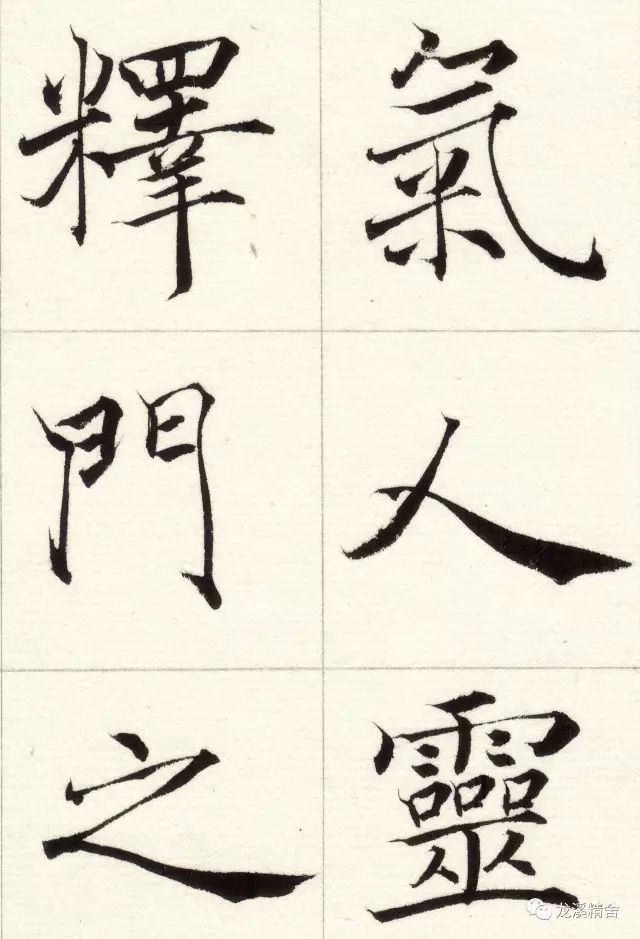 氣人靈
釋門之
龙溪精舍